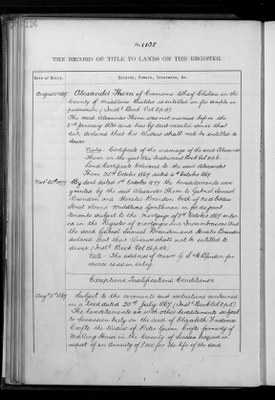 No. 1138
THE RECORD OF TITLE TO LANDS ON THE REGISTER
Date of Entry.
Estates, Powers, Interests, &c.
Alexander Thorn of Cremorne Wharf Chelsea in the
County of Middlesex Builder is entitled in fee simple in
possession
The said Alexander Thorn was not married before the
2nd January 1834 and has by deed
declared that his Widow shall not be entitled to
dower
Note: Certificate of the marriage of the said Alexander
Thorn
Land Certificate delivered to the said Alexander
Thorn 25th October 1867 dated 14th October 1867
By deed dated 1st October 1877 the hereditaments were
granted by the said Alexander Thorn to Gabriel Samuel
Brandon and Horatio Brandon both of No 15 Essex
Street Strand Middlesex Gentlemen in fee as joint
tenants subject to the Mortgage of 8th October 1867 entered
in the Register of Mortgages and Incumbrances And
the said Gabriel Samuel Brandon and Horatio Brandon
declared that their Widows shall not be entitled to
dower
Note - The address of Messrs G. S. & H. Brandon for
service is as in entry
Exceptions Qualifications Conditions
Subject to the covenants and restrictions contained
in a deed dated 20th July 1867
The hereditaments are with other hereditaments subject
to Succession Duty on the death of Elizabeth Frederica
Crofts the Widow of Peter Guerin Crofts formerly of
Malling House in the County of Sussex Esquire in
respect of an annuity of for the life of the said